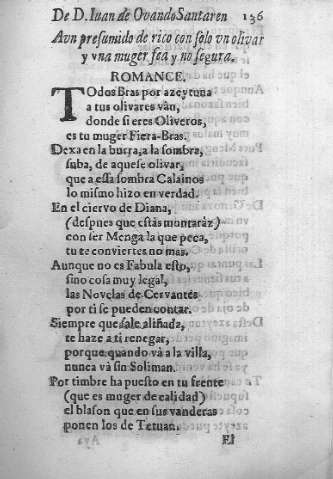 De D. Iuan de Ovando Santaren 136
Avn presumido de rico con solo vn olivar
y vna muger fea y no segura.
ROMANCE.
TOdos Bras por azeytuna
a tus olivares vàn,
donde si eres Oliveros,
es tu muger Fiera-Bras.
Dexa en la burra, a la sombra,
suba, de aquese olivar,
que a essa sombra Calainos
lo mismo hizo en verdad.
En el ciervo de Diana,
(despues que estàs montaràz)
con ser Menga la que peca,
tu te conviertes no mas.
Aunque no es Fabula esto,
sino cosa muy legal,
las Novelas de Cervantes
por ti se pueden contar.
Siempre que sale aliñada,
te haze a ti renegar,
porque quando và a la villa,
nunca và sin Soliman.
Por timbre ha puesto en tu frente
(que es muger de calidad)
el blason que en sus vanderas
ponen los de Tetuan.
El